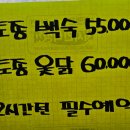 토종 백숙 55.000
토종 옻닭 60.000
2시간전 필수예약